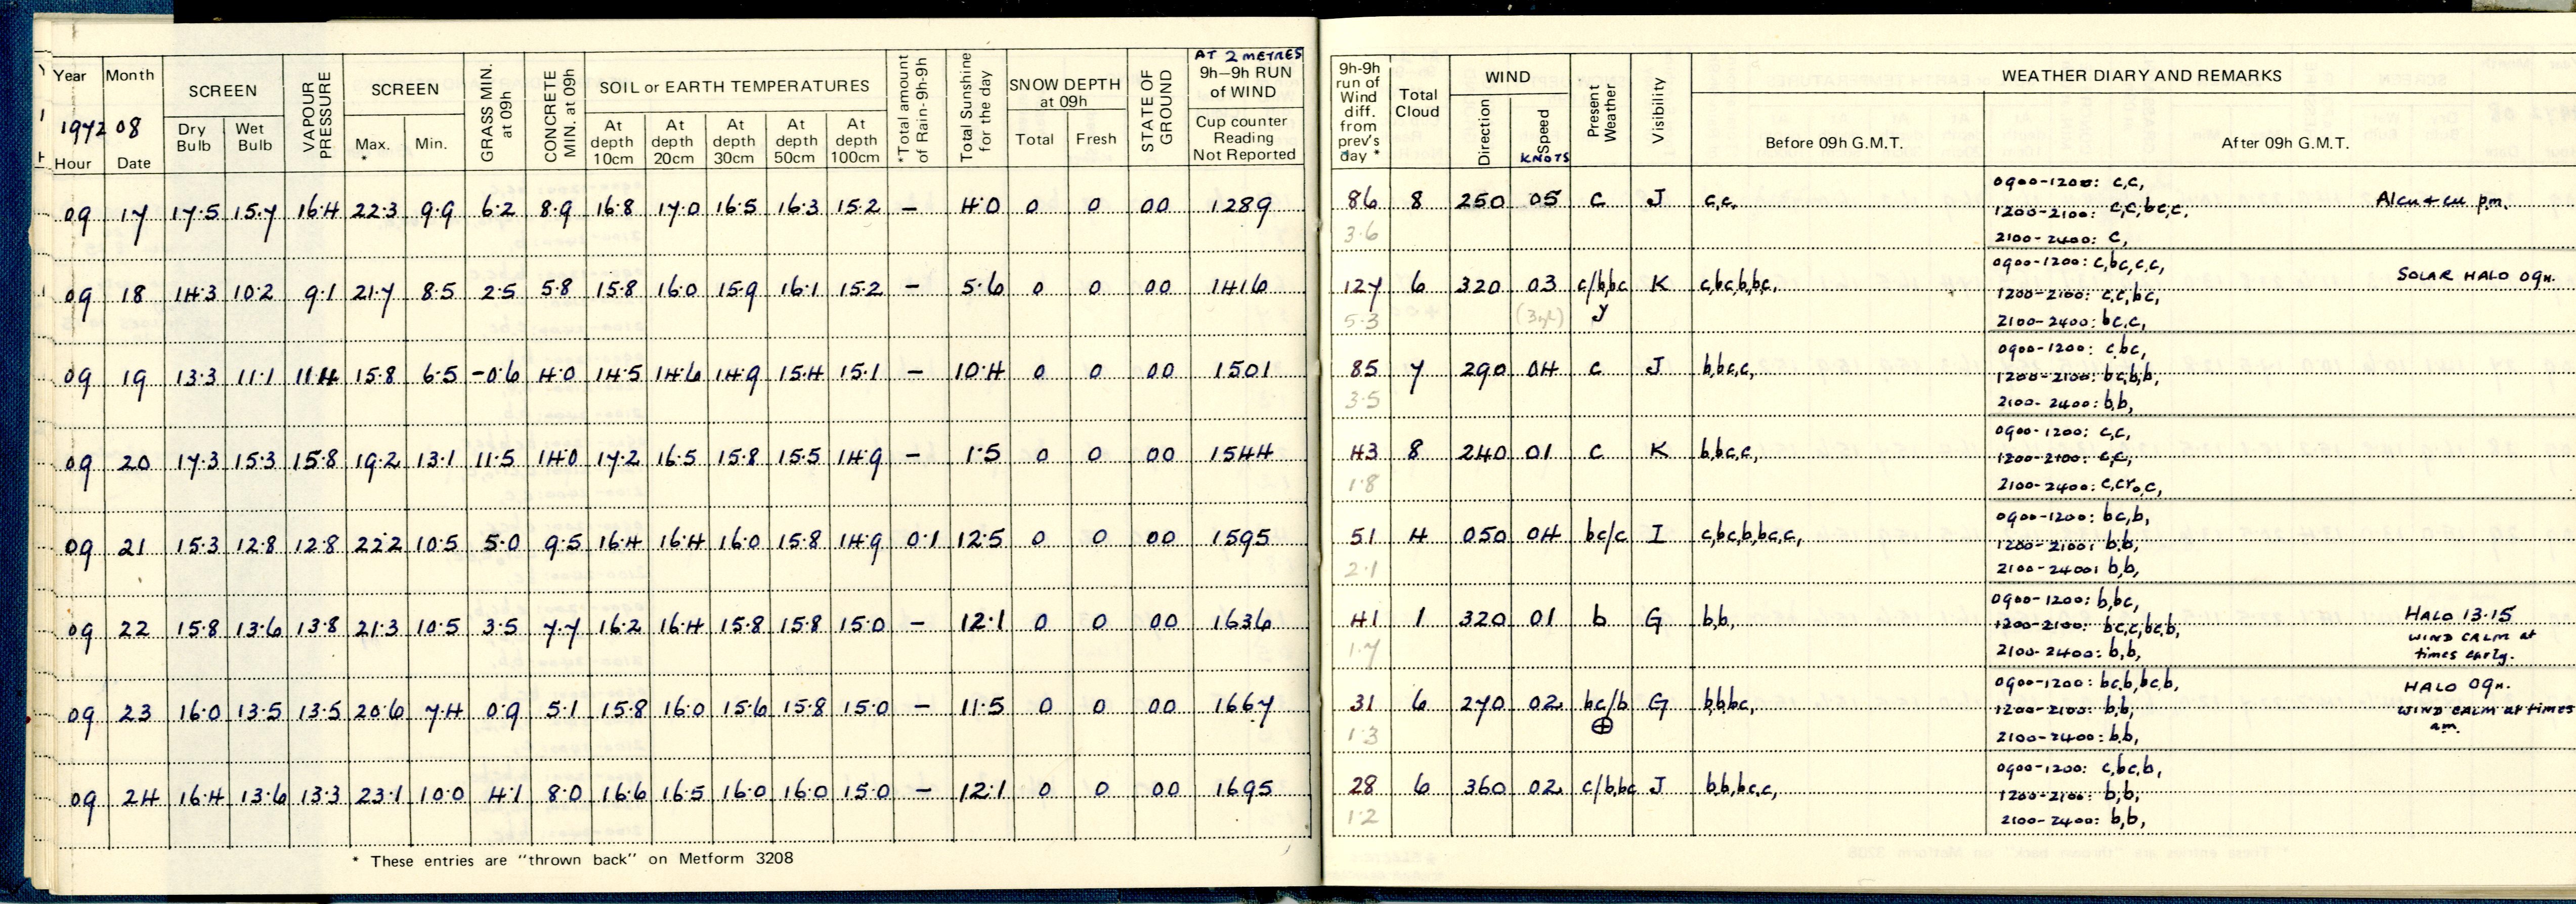 AT 2 METRES
Year Month SCREEN VAPOUR PRESSURE SCREEN GRASS MIN. at 09h CONCRETE MIN. at 09h SOIL or EARTH TEMPERATURES *Total amount of Rain-9h-9h Total Sunshine for the day SNOW DEPTH at 09h STATE OF GROUND 9h–9h RUN of WIND
1972 08 Dry Bulb Wet Bulb Max. * Min. At depth 10cm At depth 20cm At depth 30cm At depth 50cm At depth 100cm Total Fresh Cup counter Reading Not Reported
Hour Date
09 17 17.5 15.7 16.4 22.3 9.9 6.2 8.9 16.8 17.0 16.5 16.3 15.2 – 4.0 0 0 00 1289
09 18 14.3 10.2 9.1 21.7 8.5 2.5 5.8 15.8 16.0 15.9 16.1 15.2 – 5.6 0 0 00 1416
09 19 13.3 11.1 11.4 15.8 6.5 -0.6 4.0 14.5 14.6 14.9 15.4 15.1 – 10.4 0 0 00 1501
09 20 17.3 15.3 15.8 19.2 13.1 11.5 14.0 17.2 16.5 15.8 15.5 14.9 – 1.5 0 0 00 1544
09 21 15.3 12.8 12.8 22.2 10.5 5.0 9.5 16.4 16.4 16.0 15.8 14.9 0.1 12.5 0 0 00 1595
09 22 15.8 13.6 13.8 21.3 10.5 3.5 7.7 16.2 16.4 15.8 15.8 15.0 – 12.1 0 0 00 1636
09 23 16.0 13.5 13.5 20.6 7.4 0.9 5.1 15.8 16.0 15.6 15.8 15.0 – 11.5 0 0 00 1667
09 24 16.4 13.6 13.3 23.1 10.0 4.1 8.0 16.6 16.5 16.0 16.0 15.0 – 12.1 0 0 00 1695
* These entries are "thrown back" on Metform 3208
9h-9h run of Wind diff. from prev's day * Total Cloud WIND Present Weather Visibility WEATHER DIARY AND REMARKS
Direction Speed KNOTS Before 09h G.M.T. After 09h G.M.T.
0900-1200: c,c,
86 8 250 05 c J c,c, 1200-2100: c,c,bc,c, Alcu + cu p.m.
3.6 2100-2400: c,
0900-1200: c,bc,c,c,
127 6 320 03 c/b,bc K c,bc,b,bc, 1200-2100: c,c,bc, SOLAR HALO 09H.
5.3 y 2100-2400: bc,c,
0900-1200: c,bc,
85 7 290 04 c J b,bc,c, 1200-2100: bc,b,b,
3.5 2100-2400: b,b,
0900-1200: c,c,
43 8 240 01 c K b,bc,c, 1200-2100: c,c,
1.8 2100-2400: c,cr₀,c,
0900-1200: bc,b,
51 4 050 04 bc/c I c,bc,b,bc,c, 1200-2100: b,b,
2.1 2100-2400: b,b,
0900-1200: b,bc,
41 1 320 01 b G b,b, 1200-2100: bc,c,bc,b, HALO 13.15
WIND CALM at
1.7 2100-2400: b,b, times early.
0900-1200: bc,b,bc,b, HALO 09H.
31 6 270 02 bc/b G b,b,bc, 1200-2100: b,b, WIND CALM at times
1.3 ⊕ 2100-2400: b,b, am.
0900-1200: c,bc,b,
28 6 360 02 c/b,bc J b,b,bc,c, 1200-2100: b,b,
1.2 2100-2400: b,b,